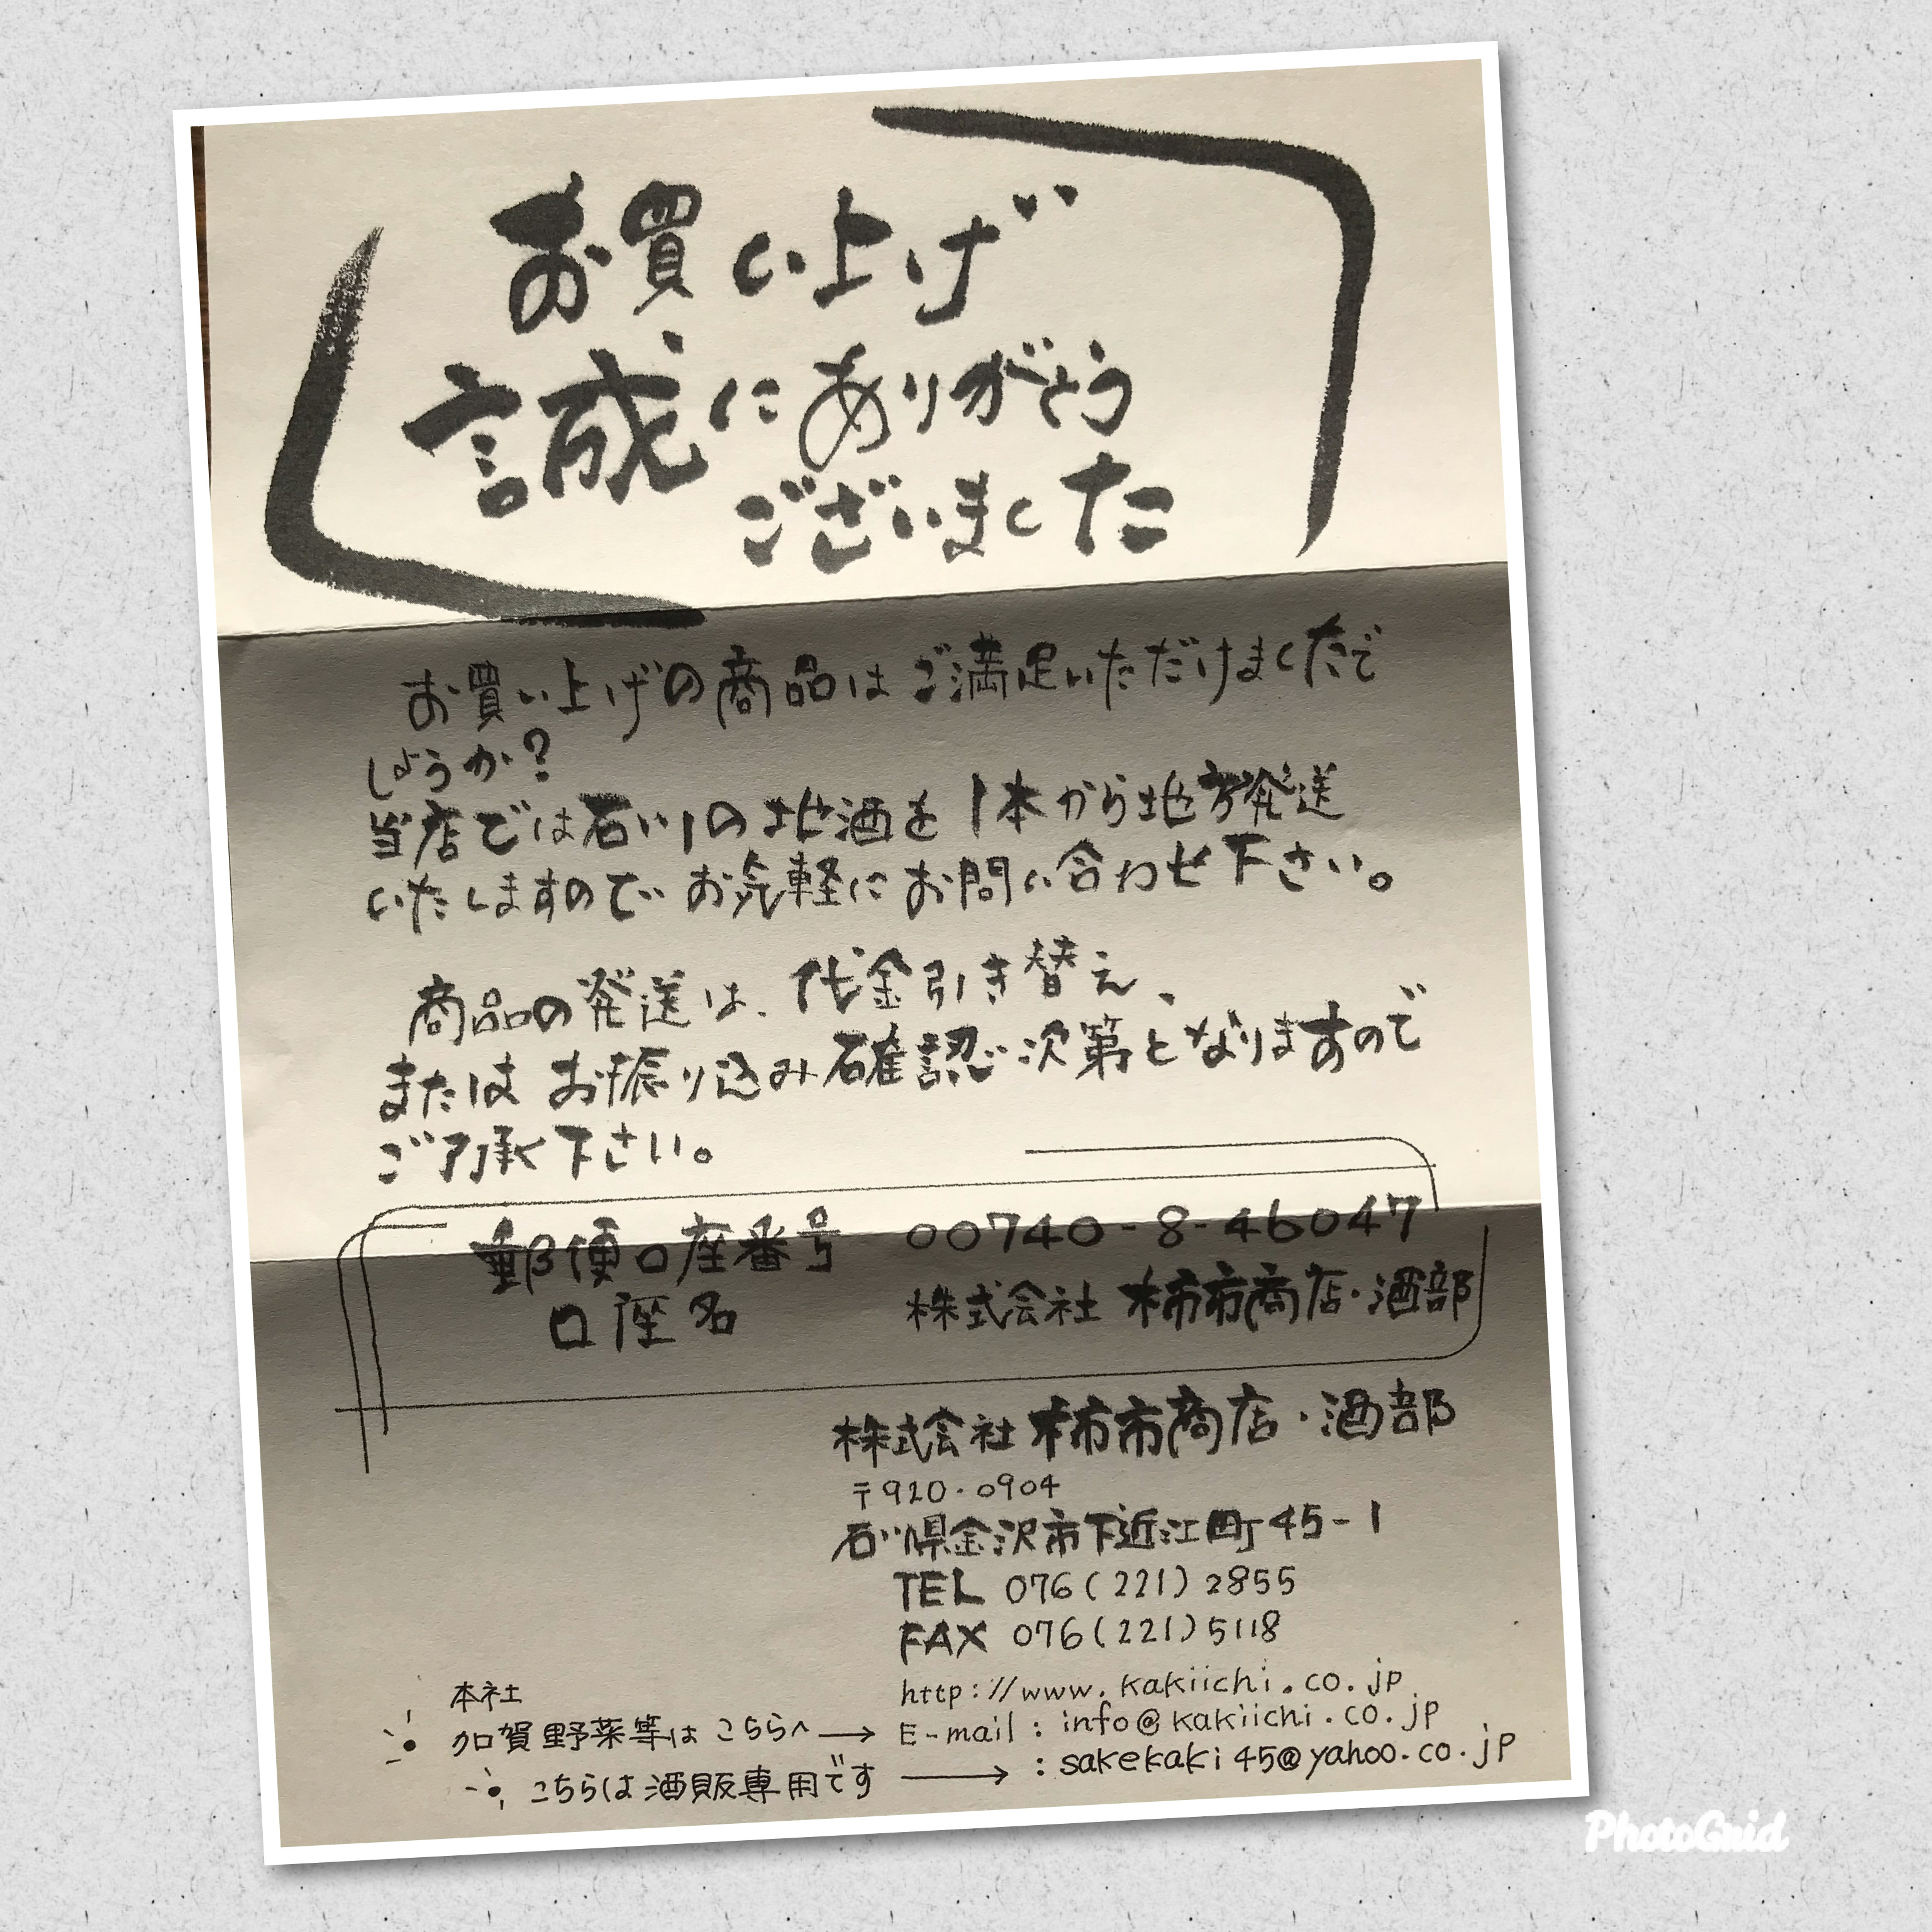 お買い上げ
誠にありがとう
ございました
お買い上げの商品はご満足いただけましたで
しょうか?
当店では石川の地酒を1本から地方発送
いたしますのでお気軽にお問い合わせ下さい。
商品の発送は、代金引き替え、
またはお振り込み確認次第となりますので
ご了承下さい。
郵便口座番号 00740-8-46047
口座名 株式会社 柿市商店・酒部
株式会社 柿市商店・酒部
〒920・0904
石川県金沢市下近江町45-1
TEL 076(221)2855
FAX 076(221)5118
http://www.kakiichi.co.jp
本社
加賀野菜等はこちらへ→ E-mail : info@kakiichi.co.jp
こちらは酒販専用です → : sakekaki45@yahoo.co.jp
PhotoGrid